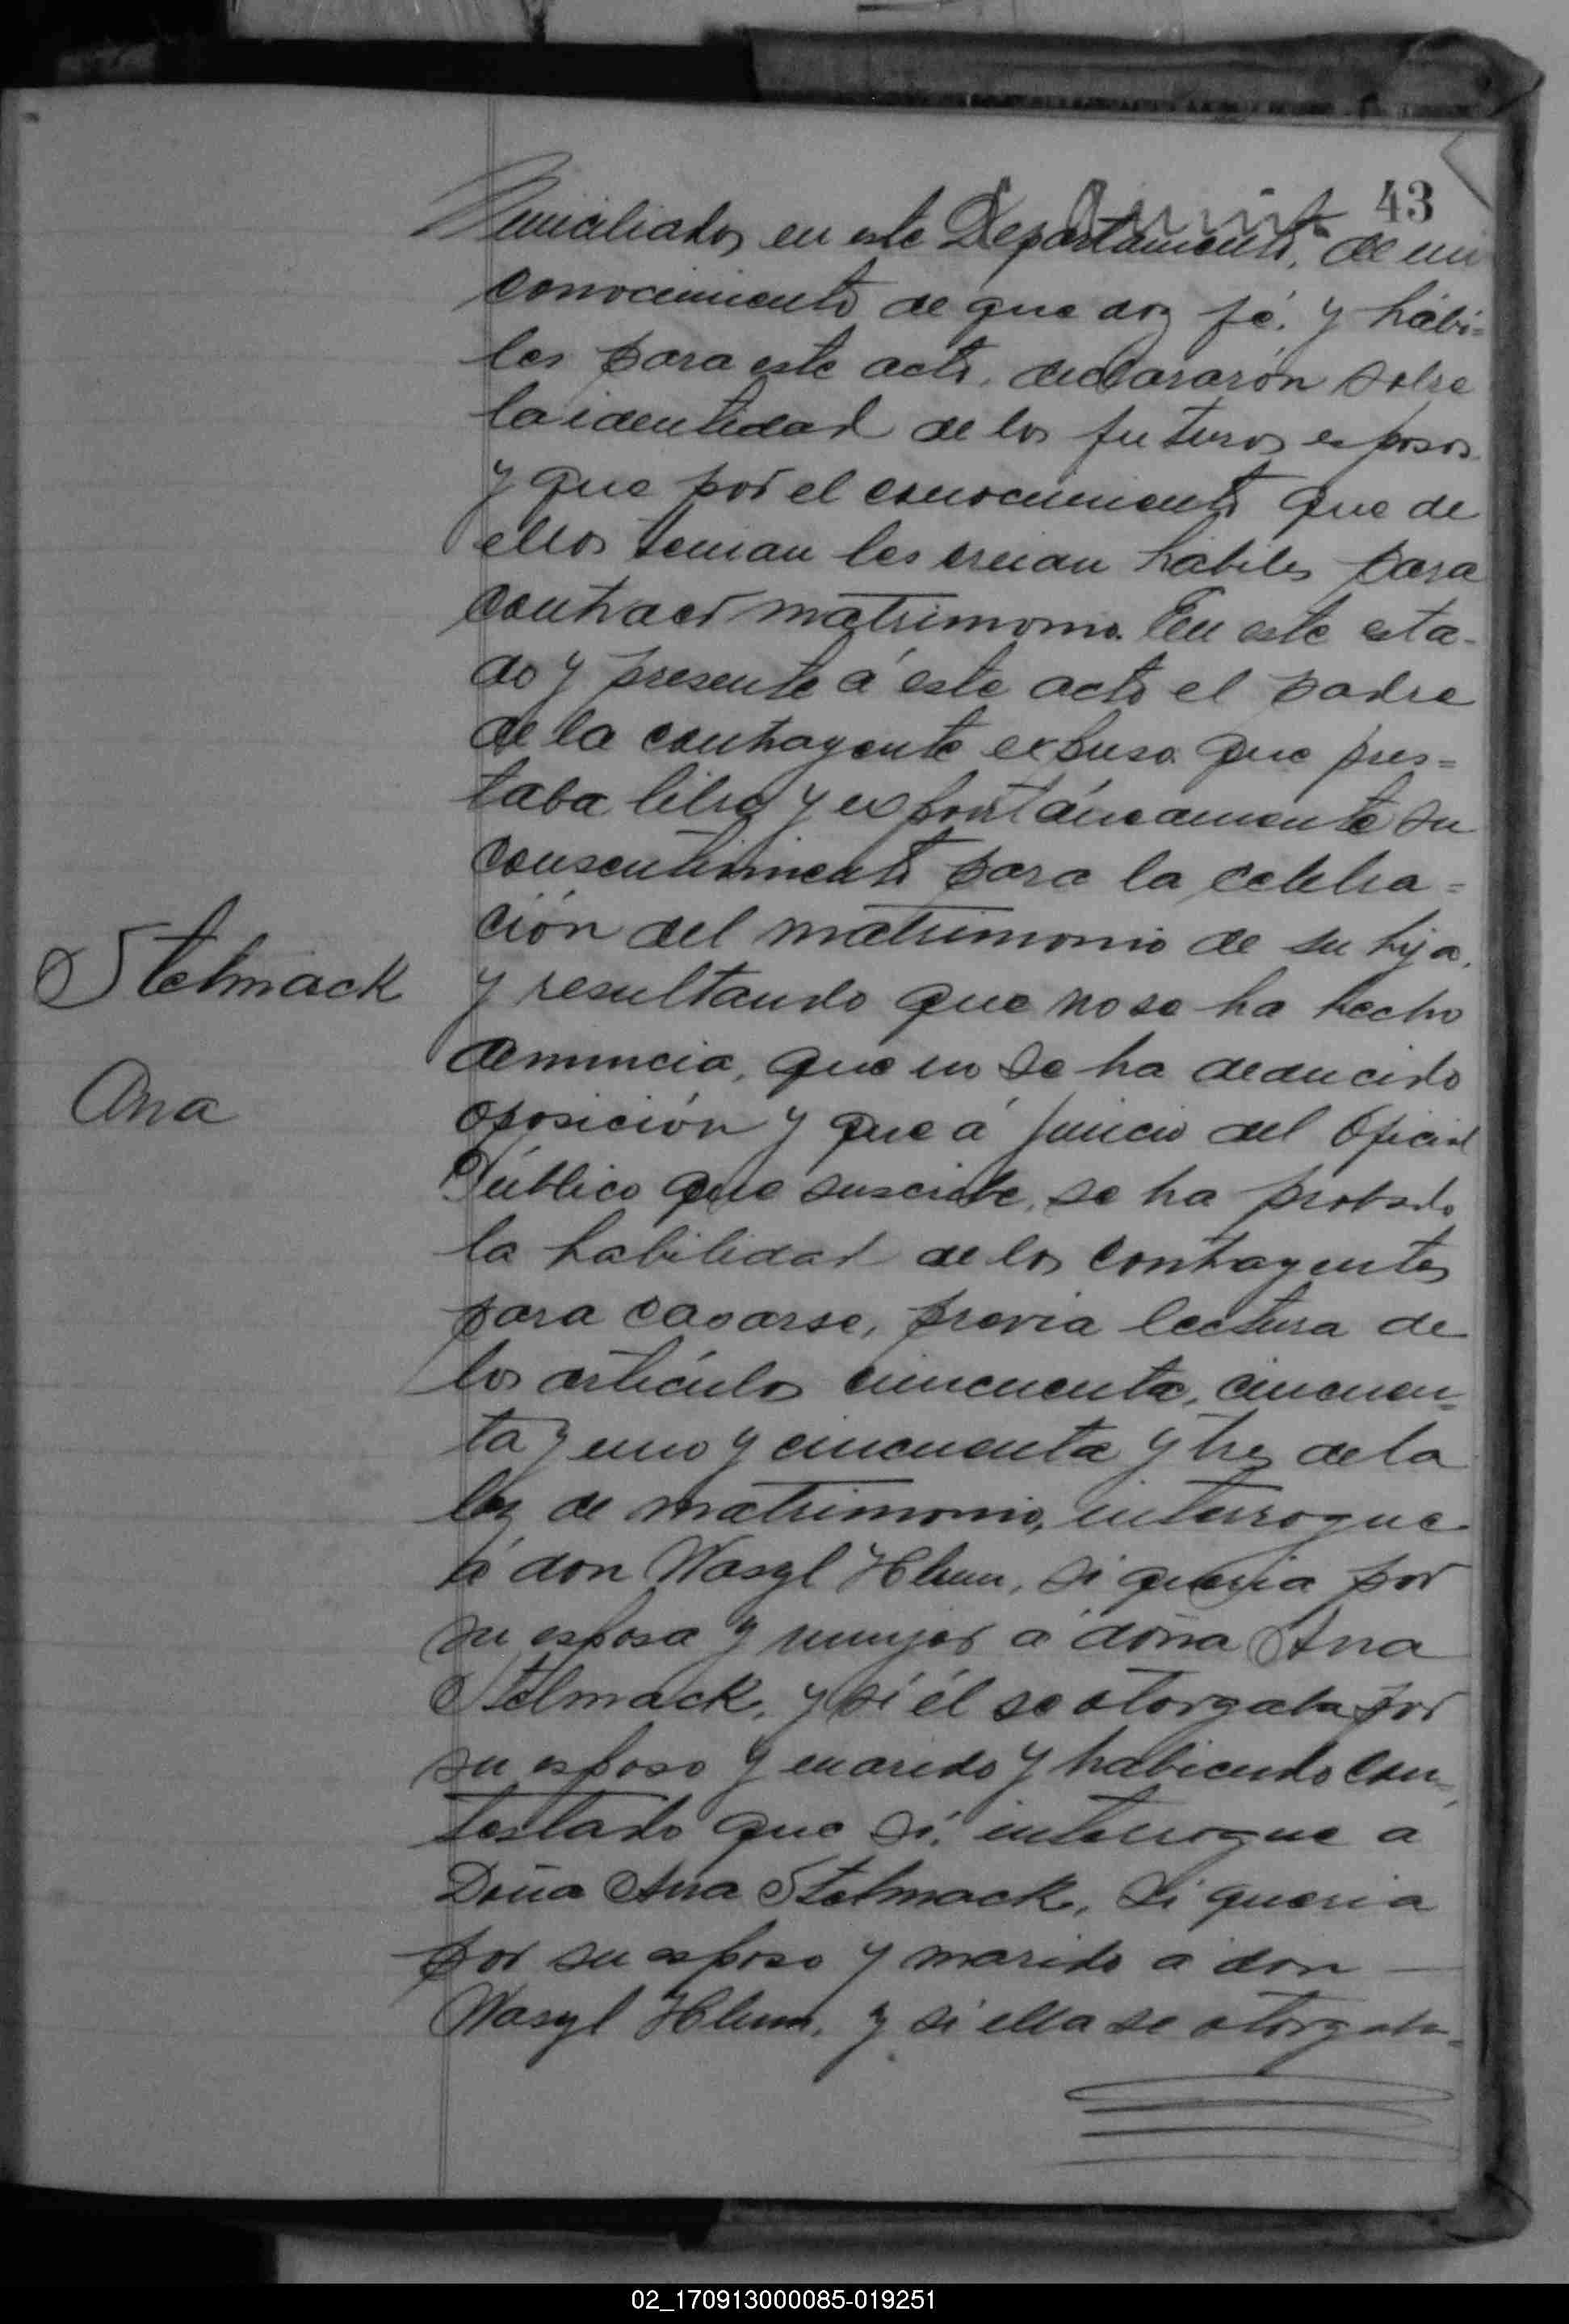 43
miciliados en este Departamento, de mi
conocimiento de que doy fé, y hábi=
les para este acto, declararón sobre
la identidad de los futuros esposos
y que por el conocimiento que de
ellos tenian les creian hábiles para
contraer matrimonio. En este esta-
do y presente á este acto el padre
de la contrayente expuso que pres=
taba libre y expontáneamente su
consentimiento para la celebra=
ción del matrimonio de su hija,
Stelmack
y resultando que no se ha hecho
denuncia, que no se ha deducido
Ana
oposición y que á juicio del Oficial
Público que suscribe, se ha probado
la habilidad de los contrayentes
para casarse, previa lectura de
los artículos cincuenta, cincuen=
ta y uno y cincuenta y tres de la
ley de matrimonio, interrogue
á don Wasyl Hlum, si queria por
su esposa y mujer a doña Ana
Stelmack, y si él se otorgaba por
su esposo y marido y habiendo con=
testado que si, interrogue a
Doña Ana Stelmack, si queria
por su esposo y marido a don —
Wasyl Hlum, y si ella se otorgaba=
02_170913000085-019251